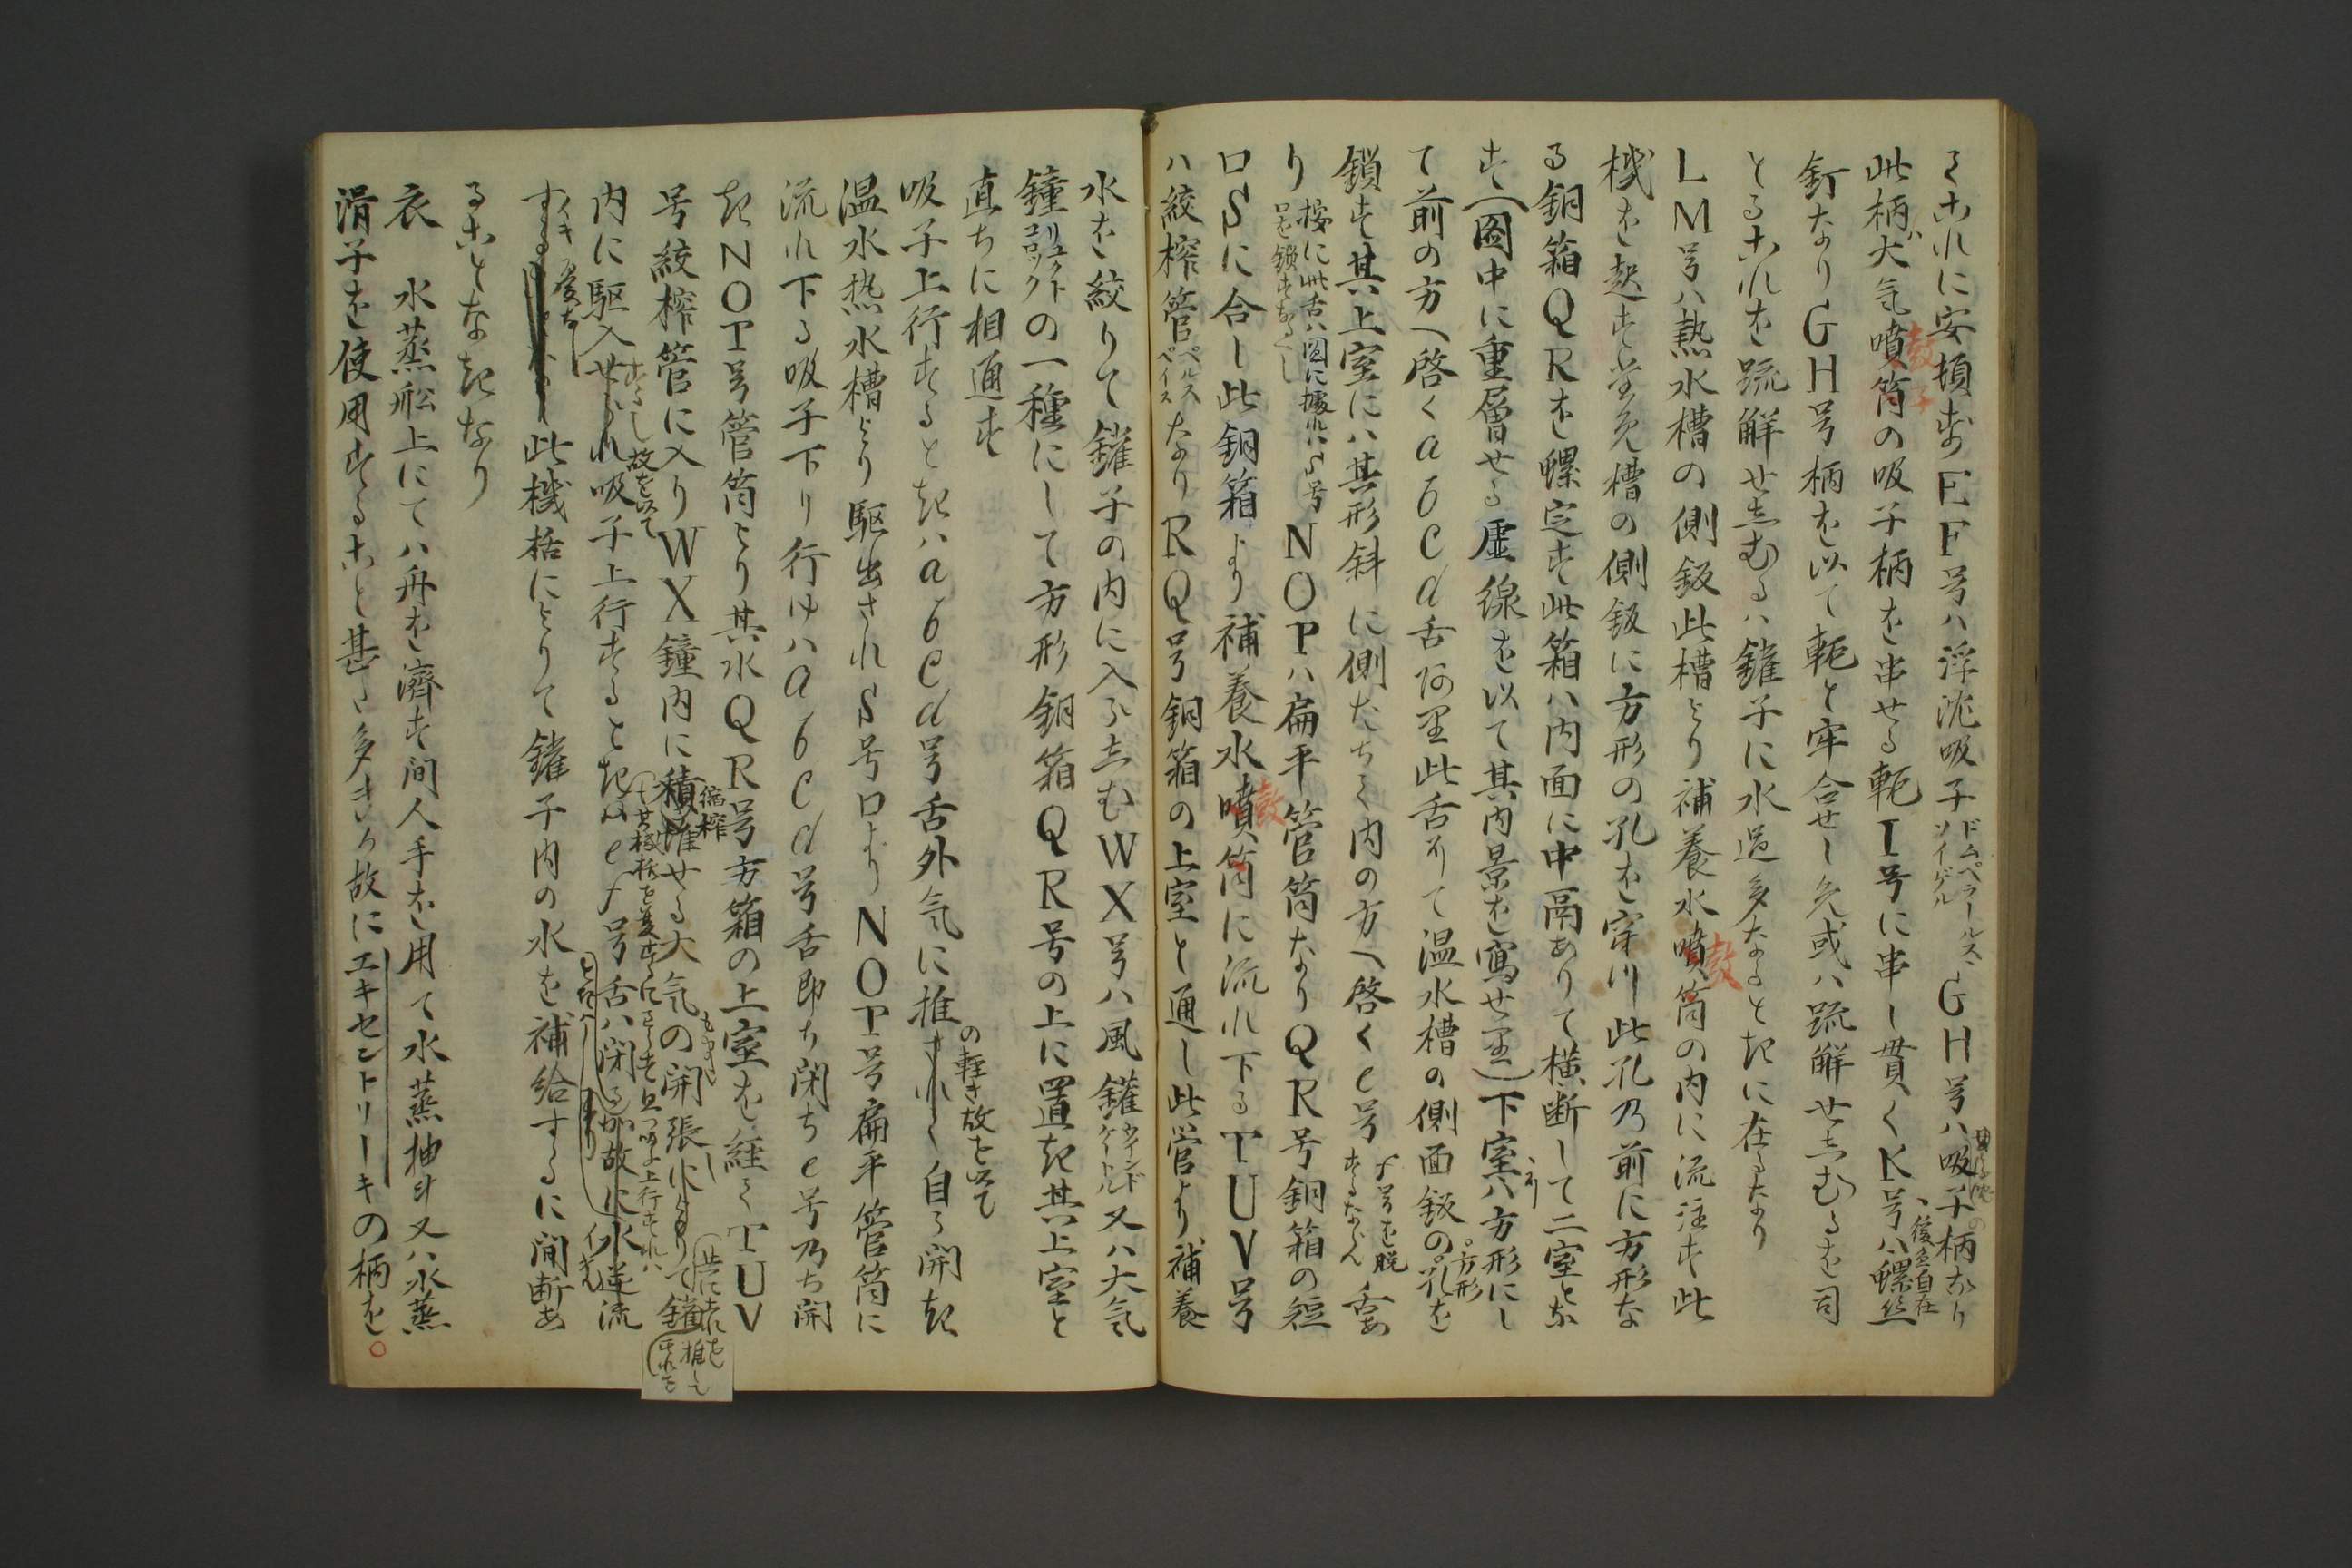 てこれに安頓す EF号ハ浮沈吸子ドムペラールス、ソイゲル GH号ハ吸子の柄なり
此柄ハ大気噴筒の吸子柄を串せる軛I号に串し貫くK号ハ螺
釘なりGH号柄を以て軛と牢合せし免或ハ疏解せしむるを司
とるこれを疏解せしむるハ鑵子に水過多なるときに在るなり
LM号ハ熱水槽の側鈑此槽より補養水噴筒の内に流注す此
機を起す為免槽の側鈑に方形の孔を穿川此孔乃前に方形な
る銅箱QRを螺定す此箱ハ内面に中鬲ありて横断して二室とな
す(図中に重層せる虚線を以て其内景を寫せ里)下室ハ方形にし
て前の方へ啓くabcd舌阿里此舌ハ温水槽の側面鈑の方形孔を
鎖す其上室にハ其形斜に側たちて内の方へ啓くe号 f号を脱するならん 舌あ
り 按に此舌ハ図に據れハS号口を鎖すなるべし NOPハ扁平管筒なりQR号銅箱の短
口Sに合し此銅箱より補養水噴筒に流れ下るTUV号
ハ絞榨管ペルスペイスなりRQ号銅箱の上室と通し此管より補養
水を絞りて鑵子の内に入らしむWX号ハ風鑵ウインドケートル又ハ大気
鐘リュクトコロックの一種にして方形銅箱QR号の上に置き其上室と
直ちに相通す
吸子上行するときハabcd号舌外気に推されて自ら開き
の軽き故を以て
温水熱水槽より駆出されS号口よりNOP号扁平管筒に
流れ下る吸子下り行けハabcd号舌即ち閉ちe号乃ち開
きNOP号管筒より其水QR号方箱の上室を経てTUV
号絞榨管に入りWX鐘内に積堆せる大気の開張によりて鑵
縮榨
内に駆入せられ吸子上行するときハef号舌ハ閉るか故に水逆流
故を以て
する 此機括によりて鑵子内の水を補給するに間断あ
ることなきなり
衣 水蒸舩上にてハ舟を濟す間人手を用て水蒸抽斗又ハ水蒸
滑子を使用すること甚た多きか故にエキセントリーキの柄を